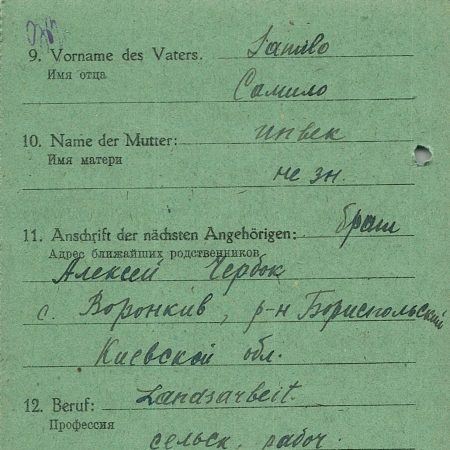 9. Vorname des Vaters. Samilo
Имя отца
Самило
10. Name der Mutter: unbek
Имя матери
не зн.
11. Anschrift der nächsten Angehörigen: брат
Адрес ближайших родственников
Алексей Чербок
с. Воронкив, р-н Бориспольский
Киевской обл.
12. Beruf: Landsarbeit.
Профессия
сельск. рабоч.